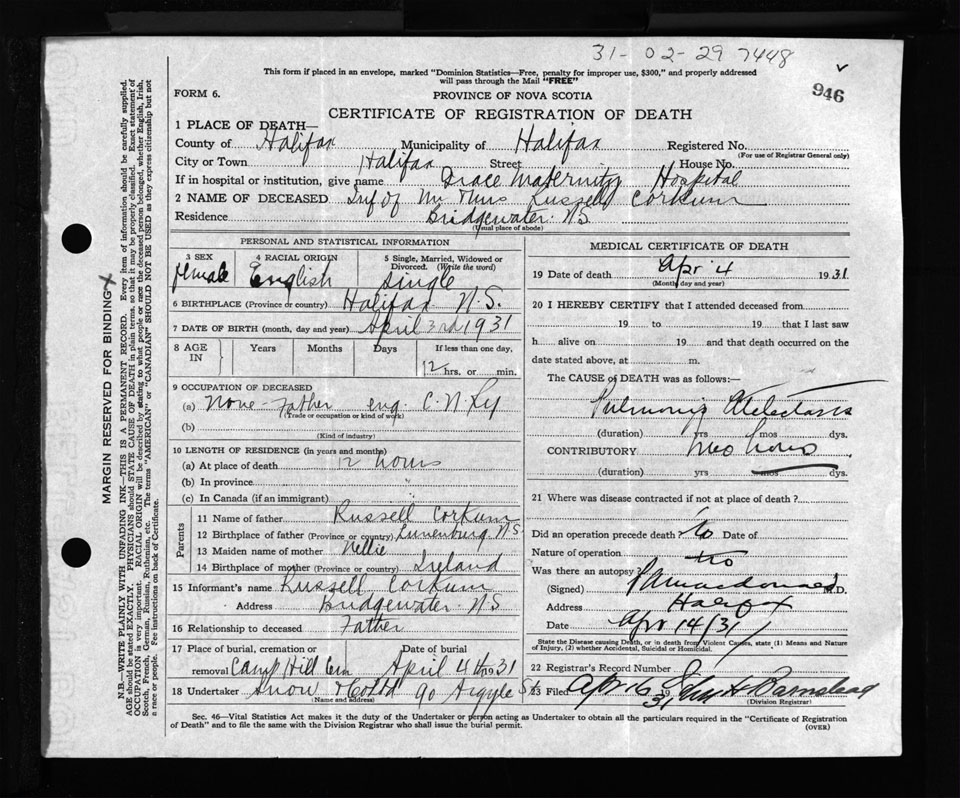 31-02-29 7448
This form if placed in an envelope, marked "Dominion Statistics—Free, penalty for improper use, $300," and properly addressed
will pass through the Mail "FREE"
946
FORM 6. PROVINCE OF NOVA SCOTIA
CERTIFICATE OF REGISTRATION OF DEATH
1 PLACE OF DEATH—
County of Halifax Municipality of Halifax Registered No.
(For use of Registrar General only)
City or Town Halifax Street House No.
If in hospital or institution, give name Grace Maternity Hospital
2 NAME OF DECEASED Inf of Mr Mrs Russell Corkum
Residence Bridgewater N.S
(Usual place of abode)
PERSONAL AND STATISTICAL INFORMATION
3 SEX 4 RACIAL ORIGIN 5 Single, Married, Widowed or Divorced. (Write the word)
female English single
6 BIRTHPLACE (Province or country) Halifax N.S.
7 DATE OF BIRTH (month, day and year) April 3rd 1931
8 AGE IN Years Months Days If less than one day,
12 hrs. or min.
9 OCCUPATION OF DECEASED
(a) None - Father eng C.N.Ry
(Trade or occupation or kind of work)
(b)
(Kind of industry)
10 LENGTH OF RESIDENCE (in years and months)
(a) At place of death 12 hours
(b) In province
(c) In Canada (if an immigrant)
Parents
11 Name of father Russell Corkum
12 Birthplace of father (Province or country) Lunenburg N.S
13 Maiden name of mother Nellie
14 Birthplace of mother (Province or country) Ireland
15 Informant's name Russell Corkum
Address Bridgewater N.S
16 Relationship to deceased Father
17 Place of burial, cremation or removal Camp Hill Cem Date of burial April 4th 1931
18 Undertaker Snow & Co Ltd 90 Argyle St
(Name and address)
MEDICAL CERTIFICATE OF DEATH
19 Date of death Apr 4 1931
(Month, day and year)
20 I HEREBY CERTIFY that I attended deceased from
19 to 19 that I last saw
h alive on 19 and that death occurred on the
date stated above, at m.
The CAUSE of DEATH was as follows:—
Pulmonary Atelectasis
(duration) yrs mos dys.
CONTRIBUTORY
(duration) yrs mos dys.
21 Where was disease contracted if not at place of death?
Did an operation precede death? No Date of
Nature of operation
Was there an autopsy? No
(Signed) Macdonald M.D.
Address Halifax
Date Apr 14/31
State the Disease causing Death, or in death from Violent Causes, state (1) Means and Nature of Injury, (2) whether Accidental, Suicidal or Homicidal.
22 Registrar's Record Number
23 Filed Apr 16 1931 John H Barnstead
(Division Registrar)
Sec. 46—Vital Statistics Act makes it the duty of the Undertaker or person acting as Undertaker to obtain all the particulars required in the "Certificate of Registration
of Death" and to file the same with the Division Registrar who shall issue the burial permit.
(OVER)
MARGIN RESERVED FOR BINDING
N.B.—WRITE PLAINLY WITH UNFADING INK—THIS IS A PERMANENT RECORD. Every item of information should be carefully supplied.
AGE should be stated EXACTLY. PHYSICIANS should STATE CAUSE OF DEATH in plain terms, so that it may be properly classified. Exact statement of
OCCUPATION is very important. RACIAL ORIGIN will be described by stating to what people or race the deceased person belonged, whether English, Irish,
Scotch, French, German, Russian, Ruthenian, etc. The terms "AMERICAN" or "CANADIAN" SHOULD NOT BE USED as they express citizenship but not
a race or people. Fee instructions on back of Certificate.